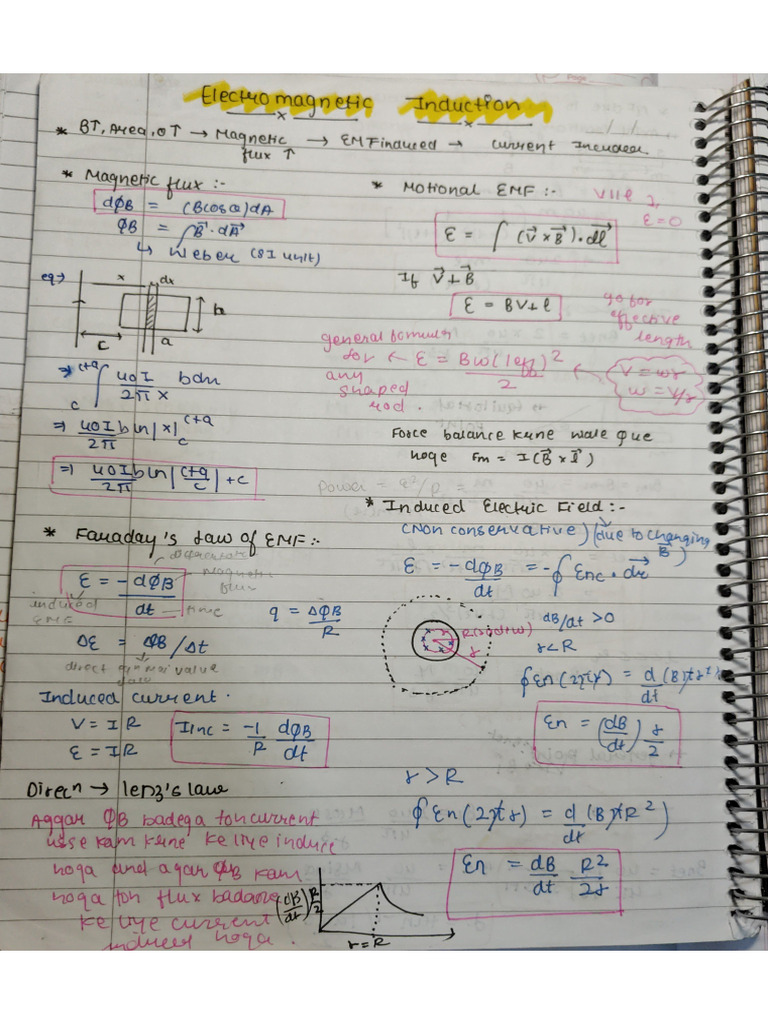 Electromagnetic Induction
* B↑, Area, θ↑ → Magnetic flux ↑ → EMF induced → current
* Magnetic flux :-
dϕB = (Bcosθ)dA
ϕB = ∫B⃗·dA⃗
↳ Weber (SI unit)
eg →
x dx
b
c a
⇒ ∫ c c+a μ0I/2πx bdx
⇒ μ0Ib/2π ln|x| c c+a
⇒ μ0Ib/2π ln|c+a/c| + c
* Faraday's Law of EMF :-
ε = -dϕB/dt
magnetic flux
time
induced EMF
q = ΔϕB/R
Δε = ΔϕB/Δt
direct value
Induced current.
V = IR
ε = IR
Iinc = -1/R dϕB/dt
Direcⁿ → lenz's law
Aggar ϕB badega toh current
usse kam krne ke liye induce
hoga and agar ϕB kam
hoga toh flux badane
ke liye current
induced hoga.
* Motional EMF :-
V||l
ε = 0
ε = ∫(V⃗×B⃗)·dl⃗
If V⃗⊥B⃗
ε = BV⊥l
go for effective length
general formula for any shaped rod.
← ε = Bω(leff)²/2
V = ωr
ω = V/r
Force balance krne wale que
hoge Fm = I(B⃗×l⃗)
* Induced Electric Field :-
(Non conservative) (due to changing B⃗)
ε = -dϕB/dt = -∮Enc·dr⃗
R
r
dB/dt > 0
r<R
∮En(2πr) = d/dt(Bπr²)
En = (dB/dt) r/2
r > R
∮En(2πr) = d/dt(BπR²)
En = dB/dt R²/2r
(dB/dt) R/2
r=R